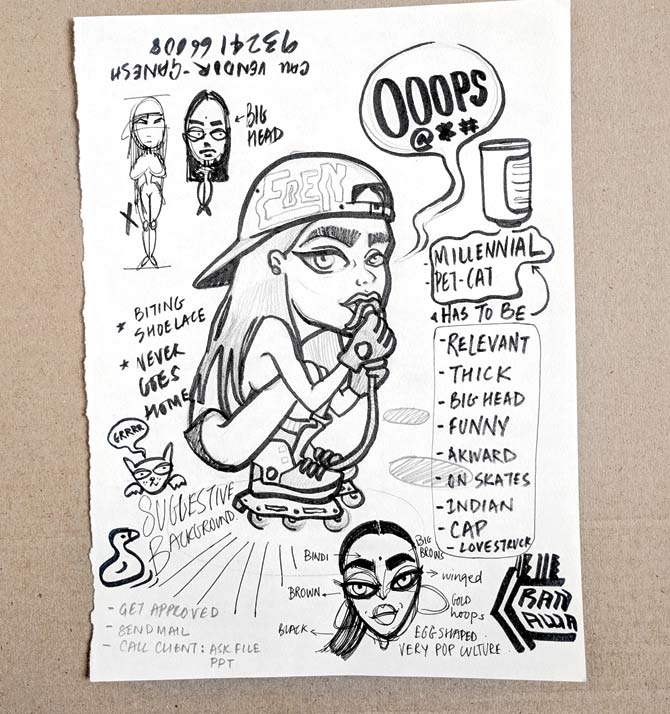 CALL VENDOR - GANESH
93241 66008
BIG
HEAD
OOOPS
@*#
EDEN
MILLENNIAL
- PET-CAT
HAS TO BE
- RELEVANT
- THICK
- BIG HEAD
- FUNNY
- AKWARD
- ON SKATES
- INDIAN
- CAP
- LOVESTRUCK
* BITING
SHOELACE
* NEVER
GOES
HOME
GRRRR
SUGGESTIVE
BACKGROUND.
BINDI
BIG
BROWS
BROWN
winged
GOLD
hoops
BLACK
EGG SHAPED
VERY POP CULTURE.
- GET APPROVED
- SEND MAIL
- CALL CLIENT: ASK FILE
PPT